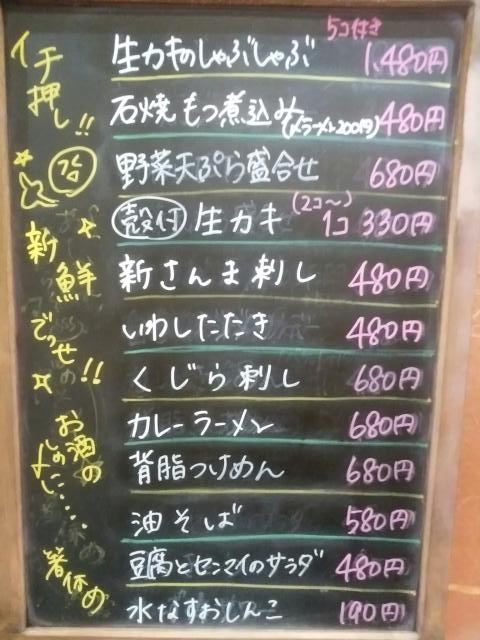 イチ押し!!
5コ付き
生カキのしゃぶしゃぶ 1,480円
石焼もつ煮込み(〆ラーメン200円) 480円
野菜天ぷら盛合せ 680円
殻付 生カキ (2コ〜) 1コ 330円
新鮮でっせ!!
新さんま刺し 480円
いわしたたき 480円
くじら刺し 680円
お酒の〆に……
カレーラーメン 680円
背脂つけめん 680円
油そば 580円
箸休め
豆腐とセンマイのサラダ 480円
水なすおしんこ 190円